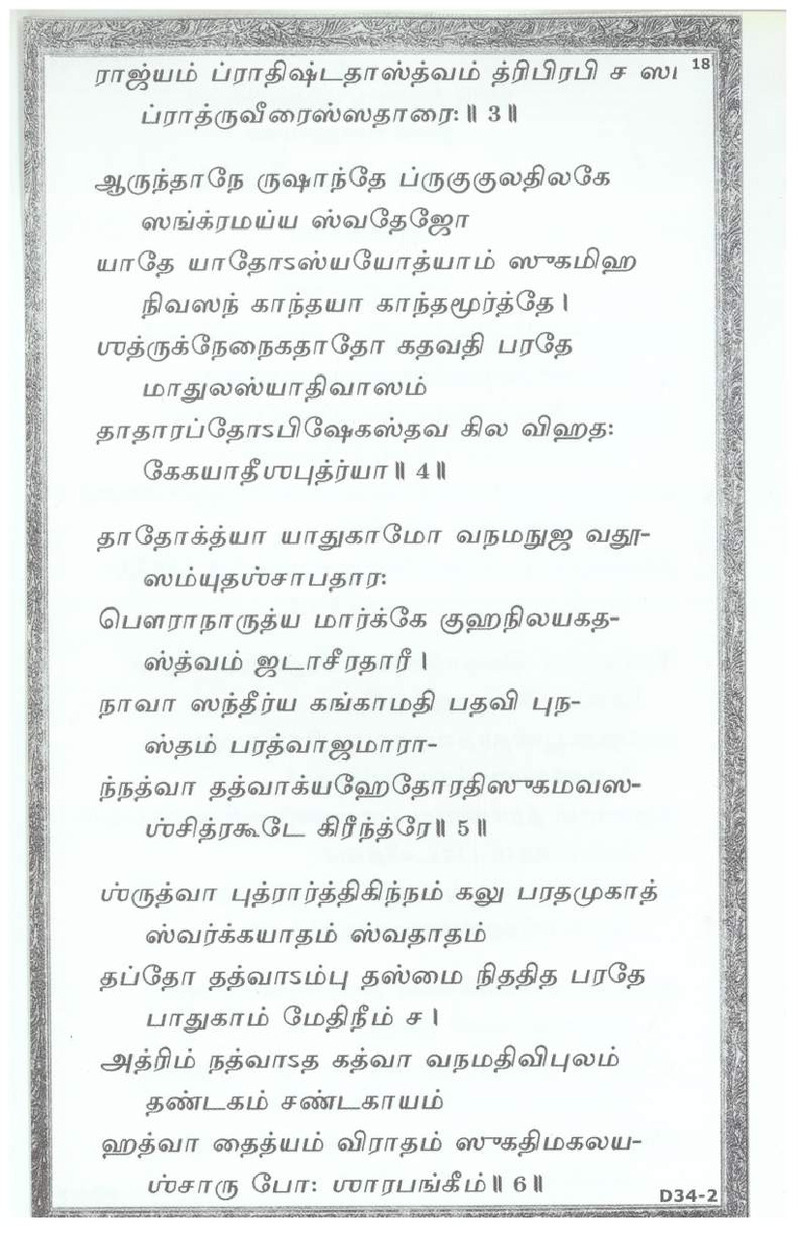 18
ராஜ்யம் ப்ராதிஷ்டதாஸ்த்வம் த்ரிபிரபி ச
ப்ராத்ருவீரைஸ்ஸதாரை: ॥ 3 ॥
ஆருந்தாநே ருஷாந்தே ப்ருகுகுலதிலகே
ஸங்க்ரமய்ய ஸ்வதேஜோ
யாதே யாதோऽஸ்யயோத்யாம் ஸுகமிஹ
நிவஸந் காந்தயா காந்தமூர்த்தே ।
ஶத்ருக்நேநைகதாதோ கதவதி பரதே
மாதுலஸ்யாதிவாஸம்
தாதாரப்தோऽபிஷேகஸ்தவ கில விஹத:
கேகயாதீஶபுத்ர்யா ॥ 4 ॥
தாதோக்த்யா யாதுகாமோ வநமநுஜ வதூ-
ஸம்யுதஶ்சாபதார:
பௌராநாருத்ய மார்க்கே குஹநிலயகத-
ஸ்த்வம் ஜடாசீரதாரீ ।
நாவா ஸந்தீர்ய கங்காமதி பதவி புந-
ஸ்தம் பரத்வாஜமாரா-
ந்நத்வா தத்வாக்யஹேதோரதிஸுகமவஸ-
ஶ்சித்ரகூடே கிரீந்த்ரே ॥ 5 ॥
ஶ்ருத்வா புத்ரார்த்திகிந்நம் கலு பரதமுகாத்
ஸ்வர்க்கயாதம் ஸ்வதாதம்
தப்தோ தத்வாऽம்பு தஸ்மை நிததித பரதே
பாதுகாம் மேதிநீம் ச ।
அத்ரிம் நத்வாऽத கத்வா வநமதிவிபுலம்
தண்டகம் சண்டகாயம்
ஹத்வா தைத்யம் விராதம் ஸுகதிமகலய-
ஶ்சாரு போ: ஶாரபங்கீம் ॥ 6 ॥
D34-2